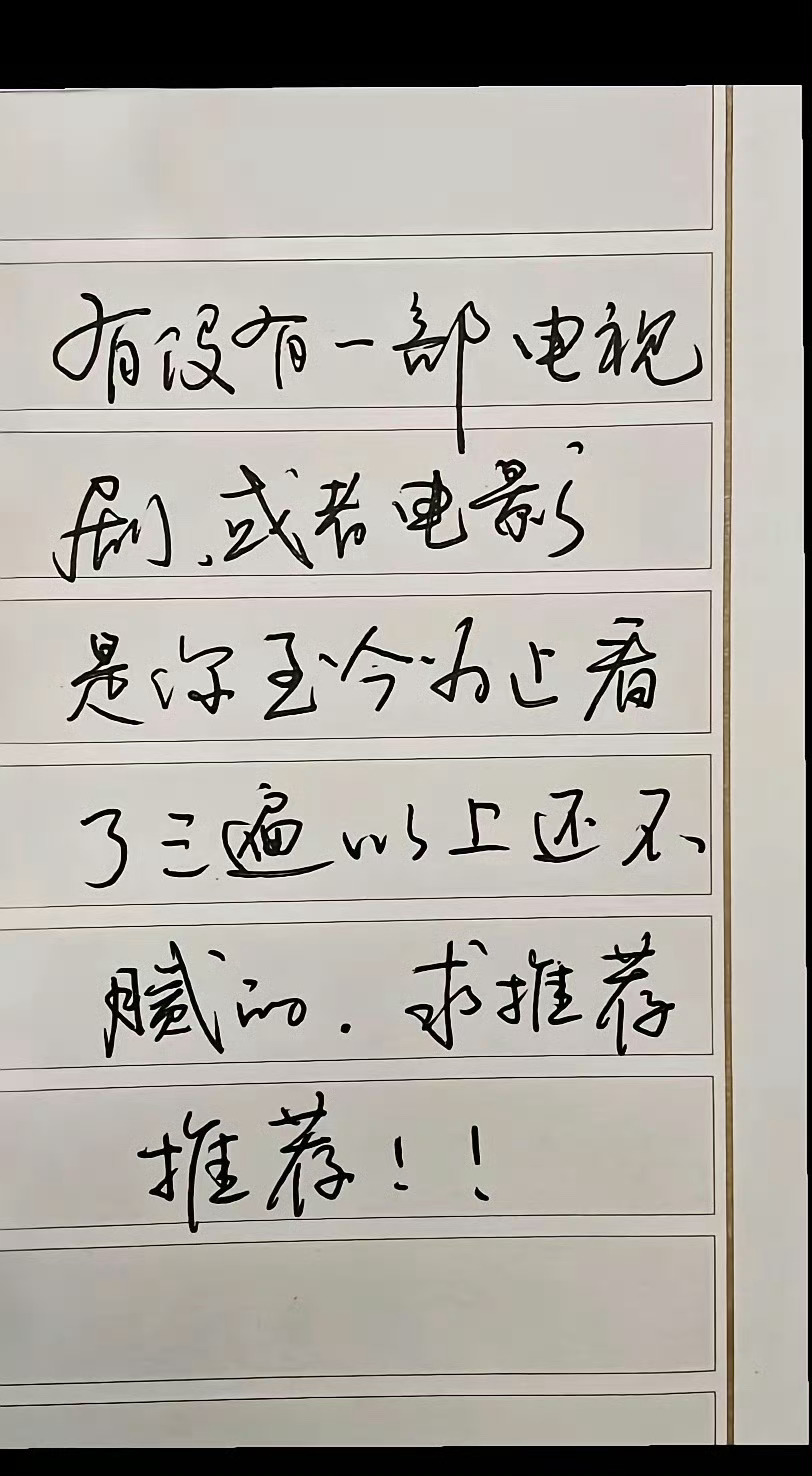 有没有一部电视
剧、或者电影
是你至今为止看
了三遍以上还不
腻的.求推荐
推荐!!